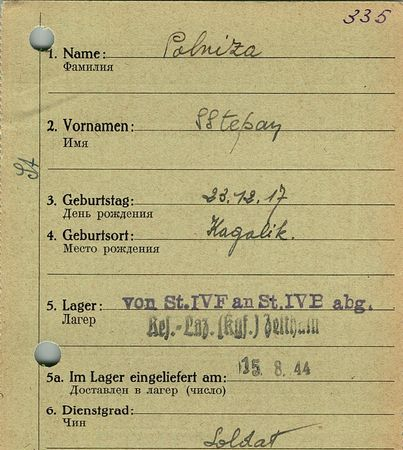 335
1. Name: Polniza
Фамилия
2. Vornamen: Sstepan
Имя
St
3. Geburtstag: 23.12.17
День рождения
4. Geburtsort: Kagalik.
Место рождения
5. Lager: von St.IVF an St.IVB abg.
Лагер
Res.-Laz. (Kgf.) Zeithain
5a. Im Lager eingeliefert am: 15. 8. 44
Доставлен в лагер (число)
6. Dienstgrad:
Чин
Soldat